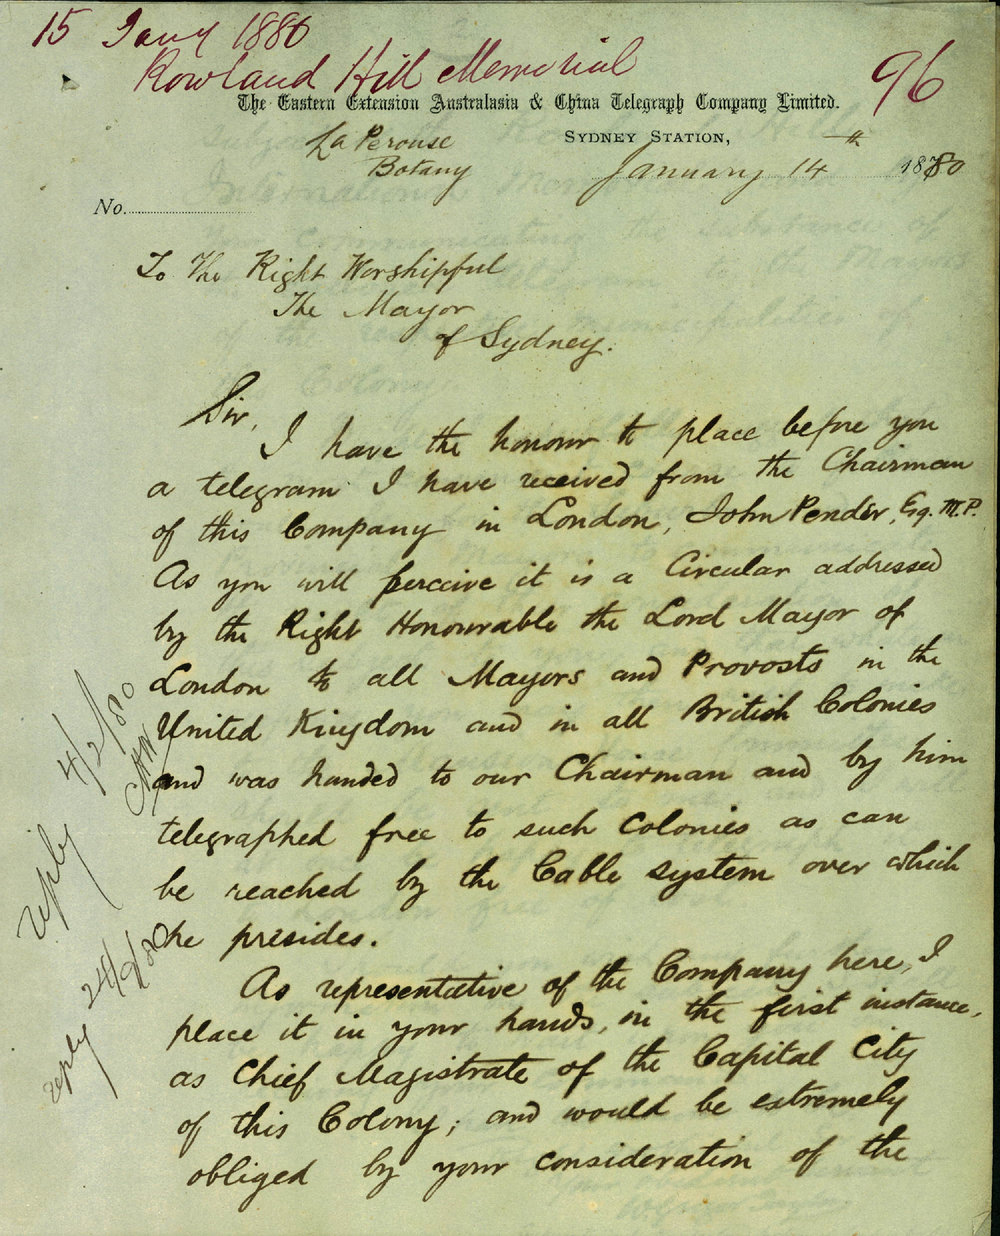 15 Jany 1880
Rowland Hill Memorial
96
The Eastern Extension Australasia & China Telegraph Company Limited.
La Perouse
Botany
SYDNEY STATION,
January 14th 1880
No.
To The Right Worshipful
The Mayor
of Sydney.
Sir,
I have the honour to place before you
a telegram I have received from the Chairman
of this Company in London, John Pender, Esq. M.P.
As you will perceive it is a Circular addressed
by the Right Honourable the Lord Mayor of
London to all Mayors and Provosts in the
United Kingdom and in all British Colonies
and was handed to our Chairman and by him
telegraphed free to such Colonies as can
be reached by the Cable system over which
he presides.
As representative of the Company here, I
place it in your hands, in the first instance,
as Chief Magistrate of the Capital City
of this Colony; and would be extremely
obliged by your consideration of the
reply 4/2/80
reply 24/2/80